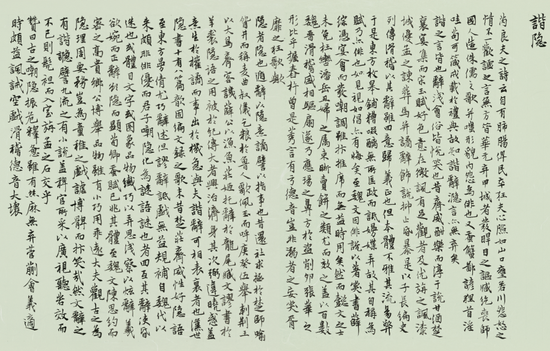 諧隱
芮良夫之詩云自有肺腸俾民卒狂夫心險如山口壅若川怨怒之
情不一歡謔之言無方昔華元弃甲城者發睅目之謳臧紇喪師
國人造侏儒之歌並嗤戲形貌內怨為俳也又蠶蟹鄙諺狸首淫
哇苟可箴戒載於禮典故知諧辭讔言亦無棄矣
諧之言皆也辭淺會俗皆悅笑也昔齊威酣樂而淳于說甘酒楚
襄宴集而宋玉賦好色意在微諷有足觀者及優旃之諷漆
城優孟之諫葬馬並譎辭飾說抑止昏暴是以子長編史
列傳滑稽以其辭雖傾回意歸義正也但本體不雅其流易弊
於是東方枚皋餔糟啜醨無所匡正而詆嫚媟弄故其自稱為
賦乃亦俳也見視如倡亦有悔矣至魏文因俳說以著笑書薛綜
憑宴會而發嘲調雖抃推席而無益時用矣然而懿文之士
未免枉轡潘岳醜婦之屬束皙賣餅之類尤而效之蓋以百數
魏晉滑稽盛相驅扇遂乃應瑒之鼻方於盜削卵張華之
形比乎握舂杵曾是莠言有虧德音豈非溺者之妄笑胥
靡之狂歌歟
讔者隱也遯辭以隱意譎譬以指事也昔還社求拯於楚師喻
眢井而稱麥麴叔儀乞糧於魯人歌佩玉而呼庚癸伍舉刺荊王
以大鳥齊客譏薛公以海魚莊姬託辭於龍尾臧文謬書於
羊裘隱語之用被於紀傳大者興治濟身其次弼違曉惑蓋
意生於權譎而事出於機急與夫諧辭可相表裏者也漢世
隱書十有八篇歆固編文錄之歌末昔楚莊齊威性好隱語
至東方曼倩尤巧辭述但謬辭詆戲無益規補自魏代以
來頗非俳優而君子嘲隱化為謎語謎也者迴互其辭使昏
迷也或體目文字或圖象品物纖巧以弄思淺察以衒辭義
欲婉而正辭欲隱而顯荀卿蠶賦已兆其體至魏文陳思約而
密之高貴鄉公博舉品物雖有小巧用乖遠大夫觀古之為
隱理周要務豈為童稚之戲謔搏髀而抃笑哉然文辭之
有諧讔譬九流之有小說蓋稗官所采以廣視聽若效而
不已則髡袒而入室旃孟之石交乎
贊曰古之嘲隱振危釋憊雖有絲麻無棄菅蒯會義適
時頗益諷誡空戲滑稽德音大壞